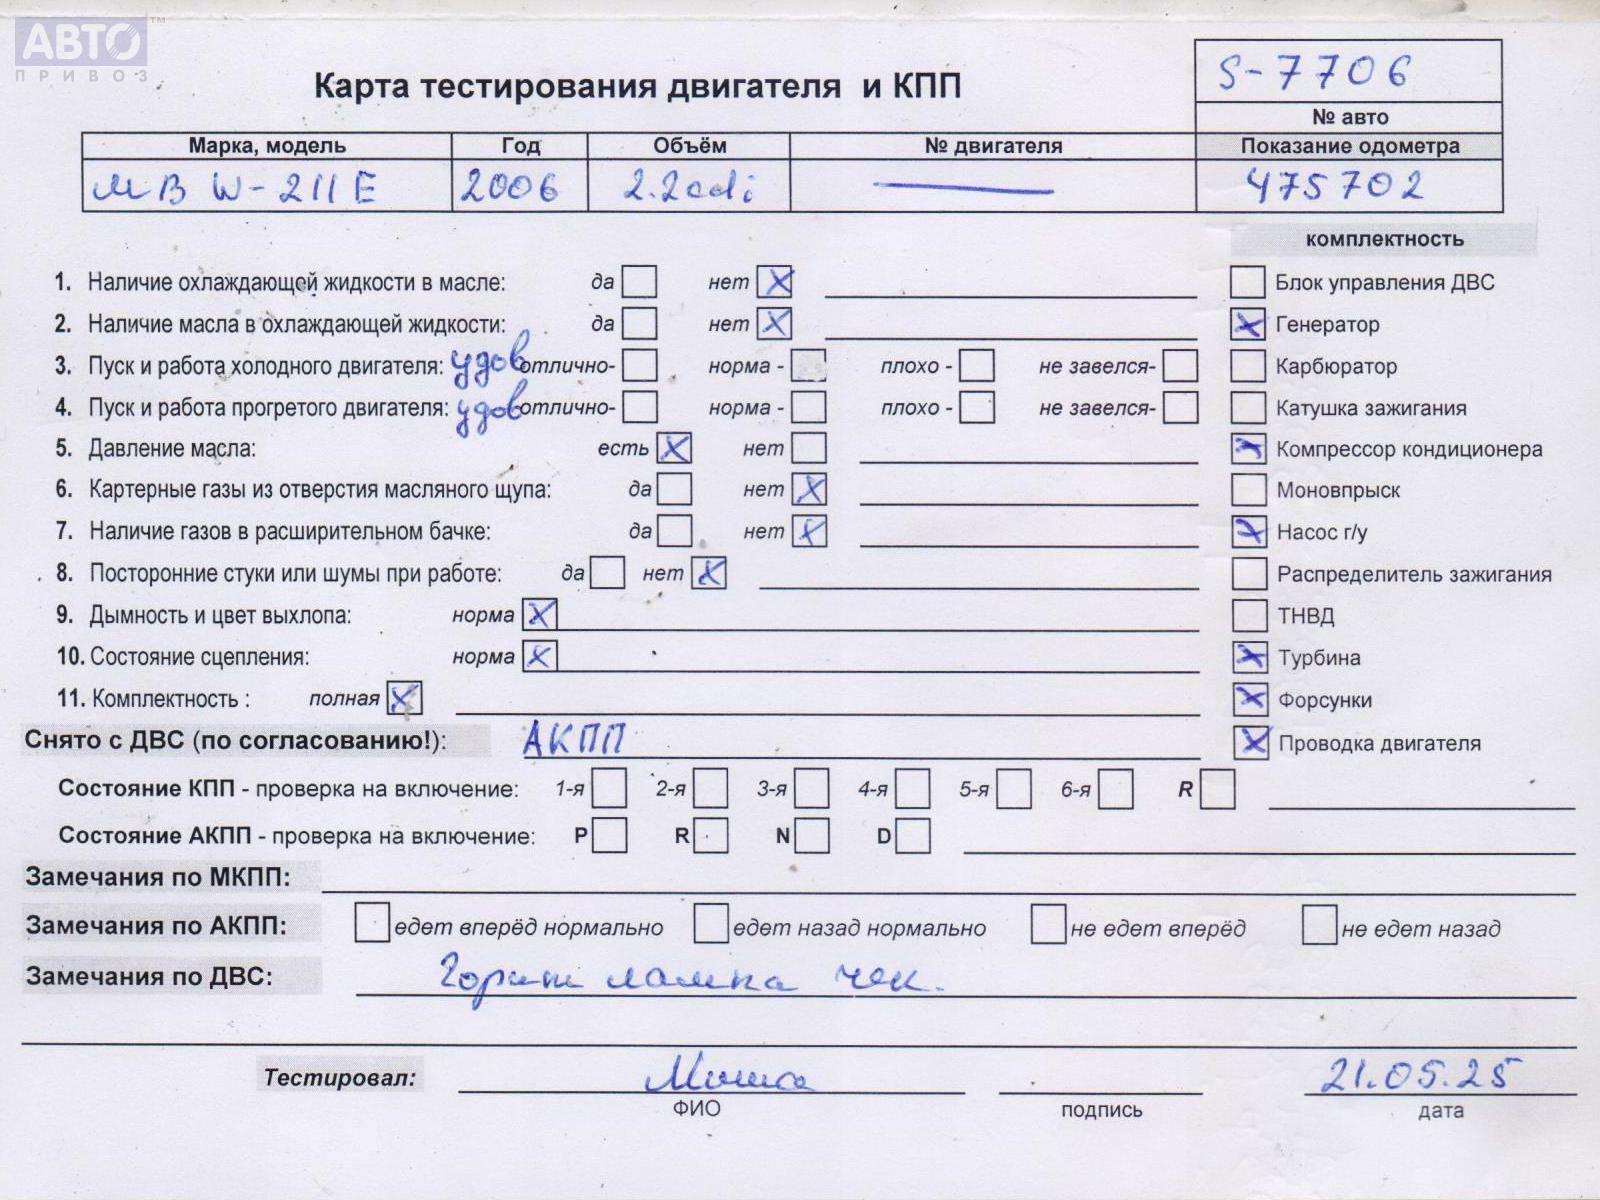 АВТО™
ПРИВОЗ
Карта тестирования двигателя и КПП
S-7706
№ авто
Марка, модель Год Объём № двигателя Показание одометра
МВ W-211E 2006 2.2cdi — 475702
комплектность
1. Наличие охлаждающей жидкости в масле: да нет X Блок управления ДВС
2. Наличие масла в охлаждающей жидкости: да нет X X Генератор
3. Пуск и работа холодного двигателя: удов отлично- норма - плохо - не завелся- Карбюратор
4. Пуск и работа прогретого двигателя: удов отлично- норма - плохо - не завелся- Катушка зажигания
5. Давление масла: есть X нет X Компрессор кондиционера
6. Картерные газы из отверстия масляного щупа: да нет X Моновпрыск
7. Наличие газов в расширительном бачке: да нет X X Насос г/у
8. Посторонние стуки или шумы при работе: да нет X Распределитель зажигания
9. Дымность и цвет выхлопа: норма X ТНВД
10. Состояние сцепления: норма X X Турбина
11. Комплектность : полная X X Форсунки
Снято с ДВС (по согласованию!): АКПП X Проводка двигателя
Состояние КПП - проверка на включение: 1-я 2-я 3-я 4-я 5-я 6-я R
Состояние АКПП - проверка на включение: P R N D
Замечания по МКПП:
Замечания по АКПП: едет вперёд нормально едет назад нормально не едет вперёд не едет назад
Замечания по ДВС: Горит лампа чек.
Тестировал: Миша 21.05.25
ФИО подпись дата